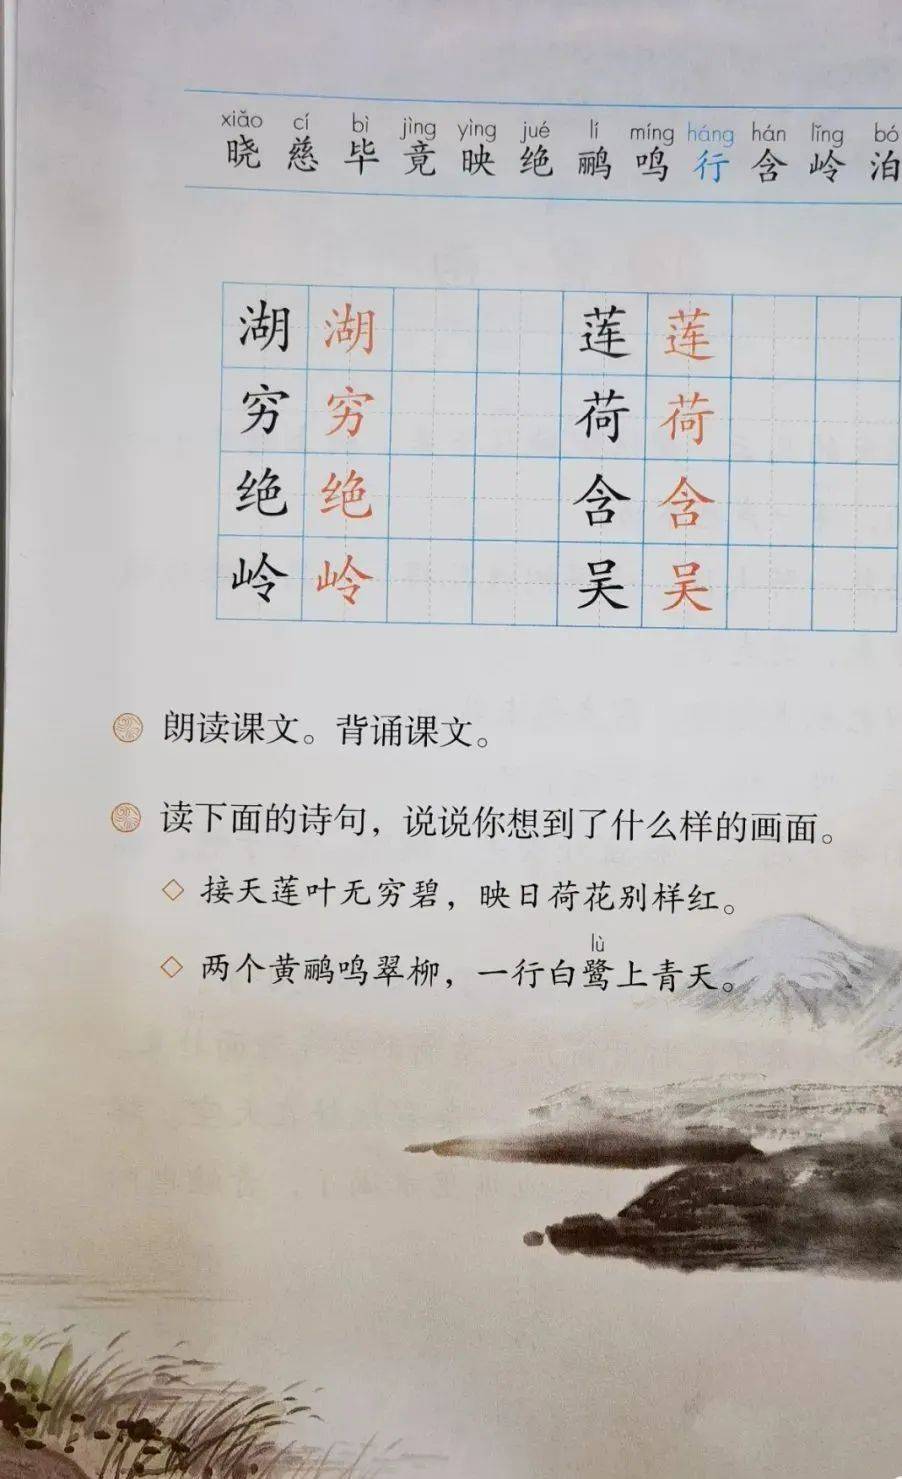 xiǎo cí bì jìng yìng jué lí míng háng hán lǐng bó
晓 慈 毕 竟 映 绝 鹂 鸣 行 含 岭 泊
湖 湖 莲 莲
穷 穷 荷 荷
绝 绝 含 含
岭 岭 吴 吴
朗读课文。背诵课文。
读下面的诗句，说说你想到了什么样的画面。
◇ 接天莲叶无穷碧，映日荷花别样红。
lù
◇ 两个黄鹂鸣翠柳，一行白鹭上青天。